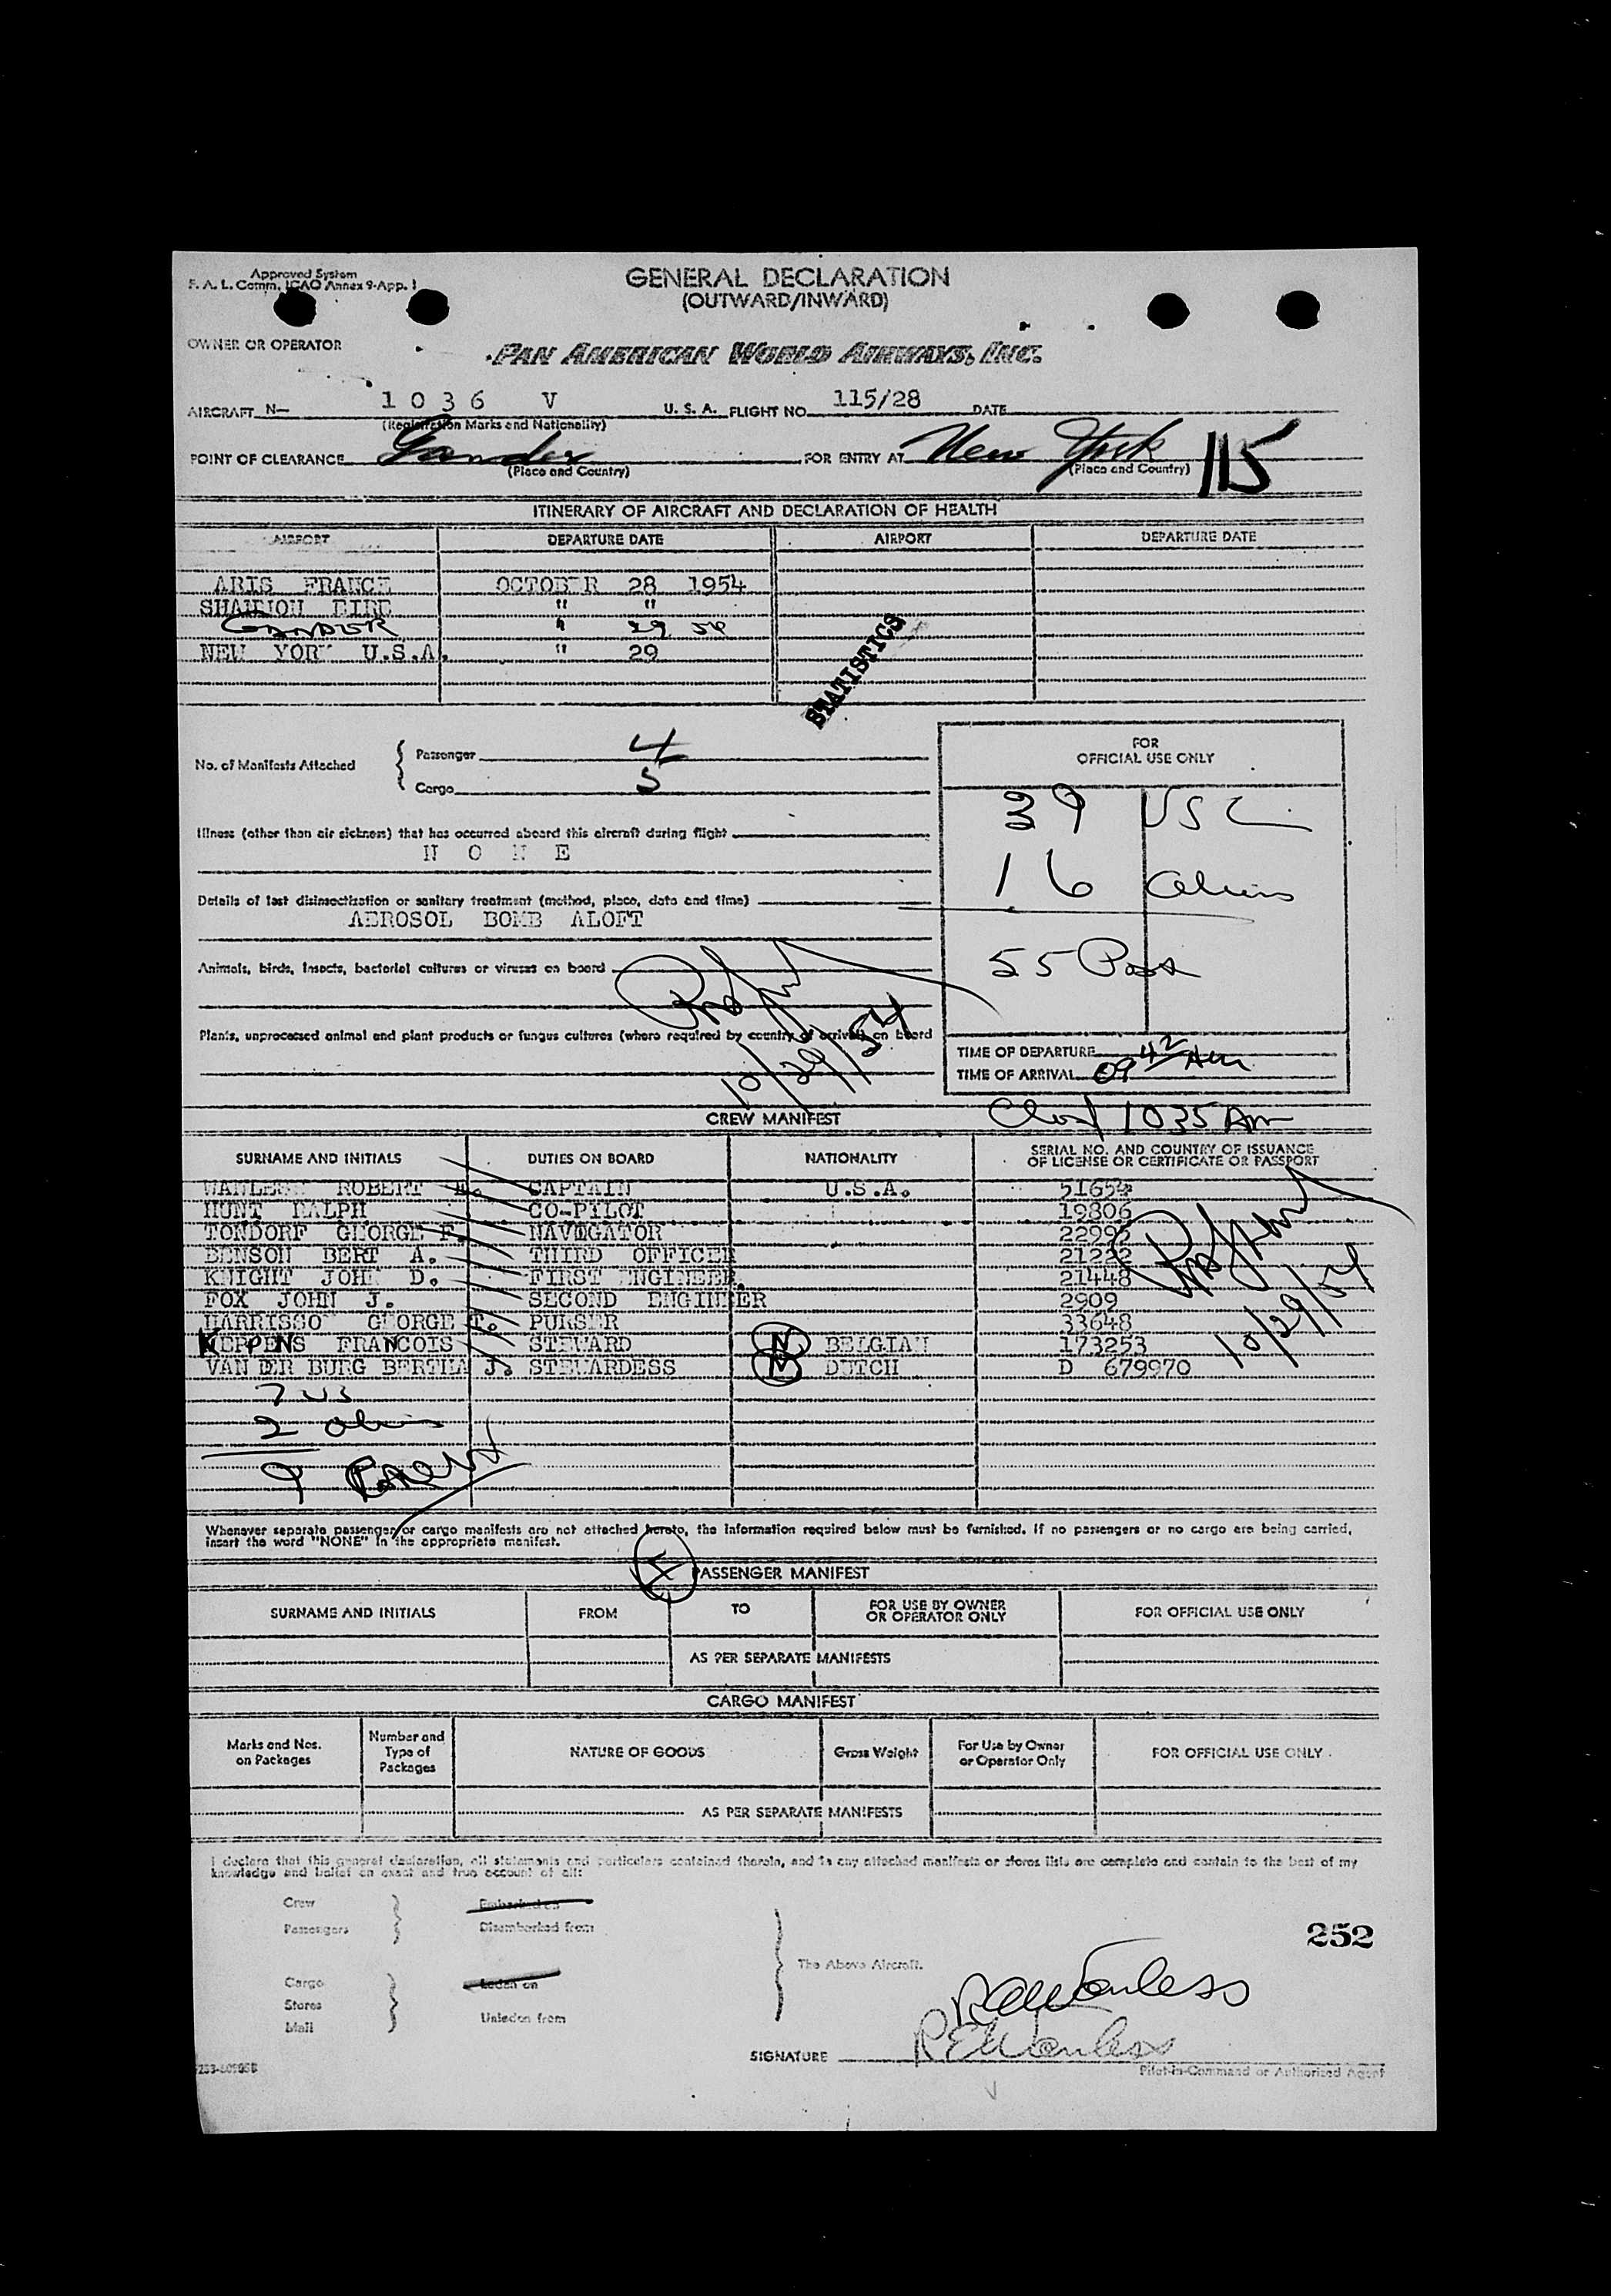 Approved System
F. A. L. Comm. ICAO Annex 9-App. 1
GENERAL DECLARATION
(OUTWARD/INWARD)
OWNER OR OPERATOR
PAN AMERICAN WORLD AIRWAYS, INC.
AIRCRAFT N— 1036 V U. S. A. FLIGHT NO. 115/28 DATE
(Registration Marks and Nationality)
POINT OF CLEARANCE Gander FOR ENTRY AT New York 115
(Place and Country) (Place and Country)
ITINERARY OF AIRCRAFT AND DECLARATION OF HEALTH
AIRPORT DEPARTURE DATE AIRPORT DEPARTURE DATE
ARIS FRANCE OCTOBER 28 1954
SHANNON EIRE " "
GANDER " 29 54
NEW YORK U.S.A. " 29
STATISTICS
No. of Manifests Attached { Passenger 4
Cargo 5
FOR
OFFICIAL USE ONLY
39 USC
16 Aliens
55 Pass
Illness (other than air sickness) that has occurred aboard this aircraft during flight
N O N E
Details of last disinsectization or sanitary treatment (method, place, date and time)
AEROSOL BOMB ALOFT
Animals, birds, insects, bacterial cultures or viruses on board
Plants, unprocessed animal and plant products or fungus cultures (where required by country of arrival) on board
10/29/54
TIME OF DEPARTURE
TIME OF ARRIVAL 09 42 AM
CREW MANIFEST
1035 Am
SURNAME AND INITIALS DUTIES ON BOARD NATIONALITY SERIAL NO. AND COUNTRY OF ISSUANCE
OF LICENSE OR CERTIFICATE OR PASSPORT
WANLESS ROBERT E. CAPTAIN U.S.A. 51654
HUNT RALPH CO-PILOT 19806
TONDORF GEORGE F. NAVIGATOR 22995
BENSON BERT A. THIRD OFFICER 21222
KNIGHT JOHN D. FIRST ENGINEER. 21448
FOX JOHN J. SECOND ENGINEER 2909
HARRISSO GEORGE T. PURSER 33648
KERPENS FRANCOIS STEWARD N BELGIAN 173253
VAN DER BURG BERTHA J. STEWARDESS N DUTCH D 679970
10/29/54
7 US
2 Aliens
9
Whenever separate passenger or cargo manifests are not attached hereto, the information required below must be furnished. If no passengers or no cargo are being carried,
insert the word "NONE" in the appropriate manifest.
X PASSENGER MANIFEST
SURNAME AND INITIALS FROM TO FOR USE BY OWNER
OR OPERATOR ONLY FOR OFFICIAL USE ONLY
AS PER SEPARATE MANIFESTS
CARGO MANIFEST
Marks and Nos.
on Packages Number and
Type of
Packages NATURE OF GOODS Gross Weight For Use by Owner
or Operator Only FOR OFFICIAL USE ONLY
AS PER SEPARATE MANIFESTS
I declare that this general declaration, all statements and particulars contained therein, and in any attached manifests or stores lists are complete and contain to the best of my
knowledge and belief an exact and true account of all:
Crew Embarked on
Passengers Disembarked from
252
The Above Aircraft.
Cargo Laden on
Stores
Mail Unladen from
REWanless
SIGNATURE REWanless
Pilot-in-Command or Authorized Agent